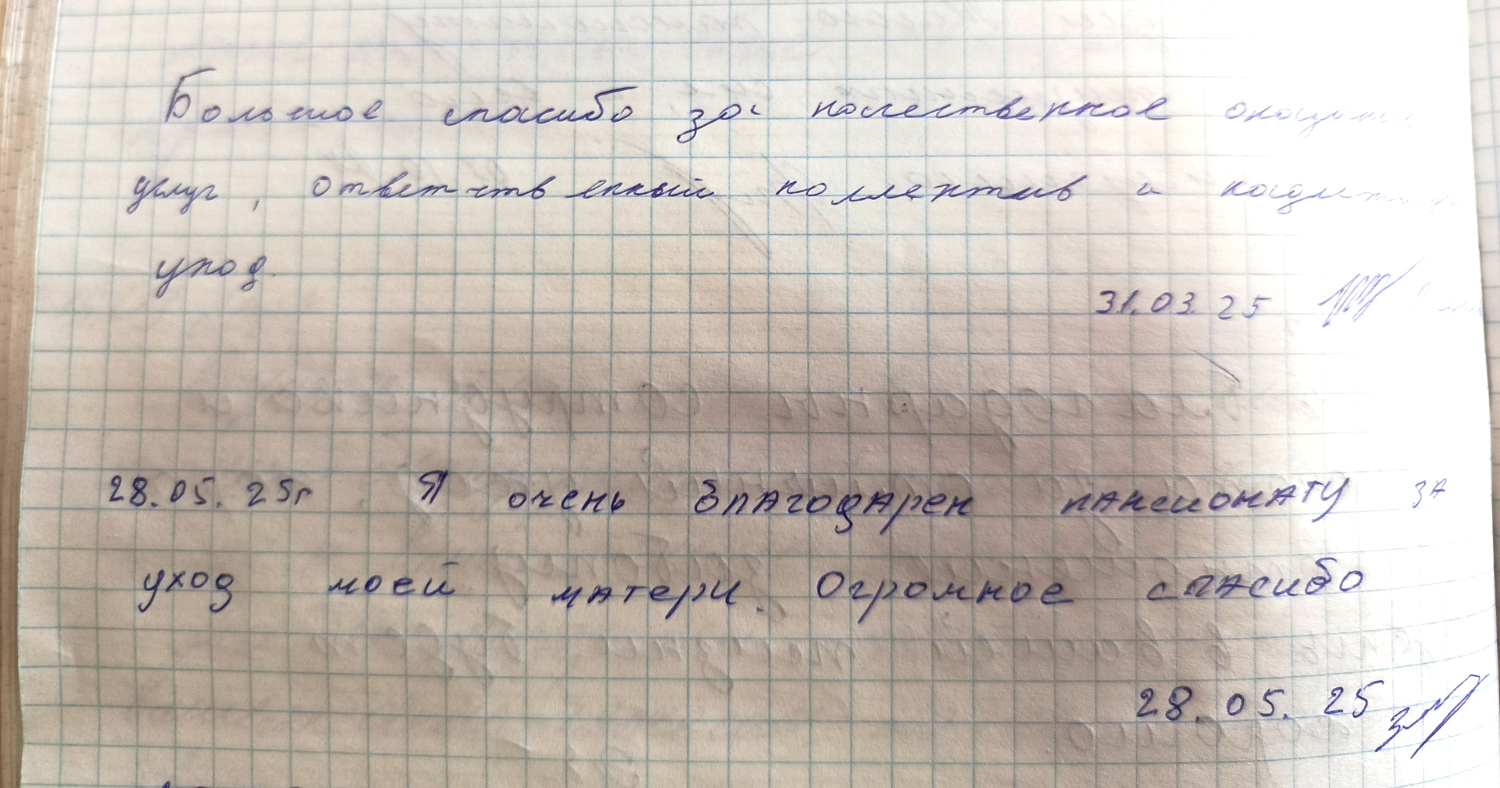 Большое спасибо за качественное оказание
услуг, ответственный коллектив и
уход.
31.03.25
28.05.25г Я очень благодарен пансионату за
уход моей матери. Огромное спасибо
28.05.25